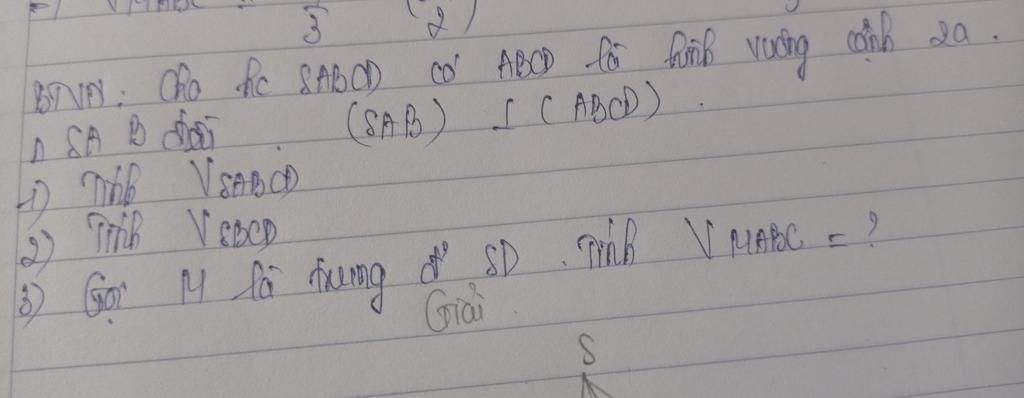 =) VMABC = 3 2
BTVN: Cho hc SABCD có ABCD là hình vuông cạnh 2a.
Δ SAB đều. (SAB) ⊥ (ABCD).
1) Tính VSABCD
2) Tính VSBCD
3) Gọi M là trung đ' SD. Tính VMABC = ?
Giải
S